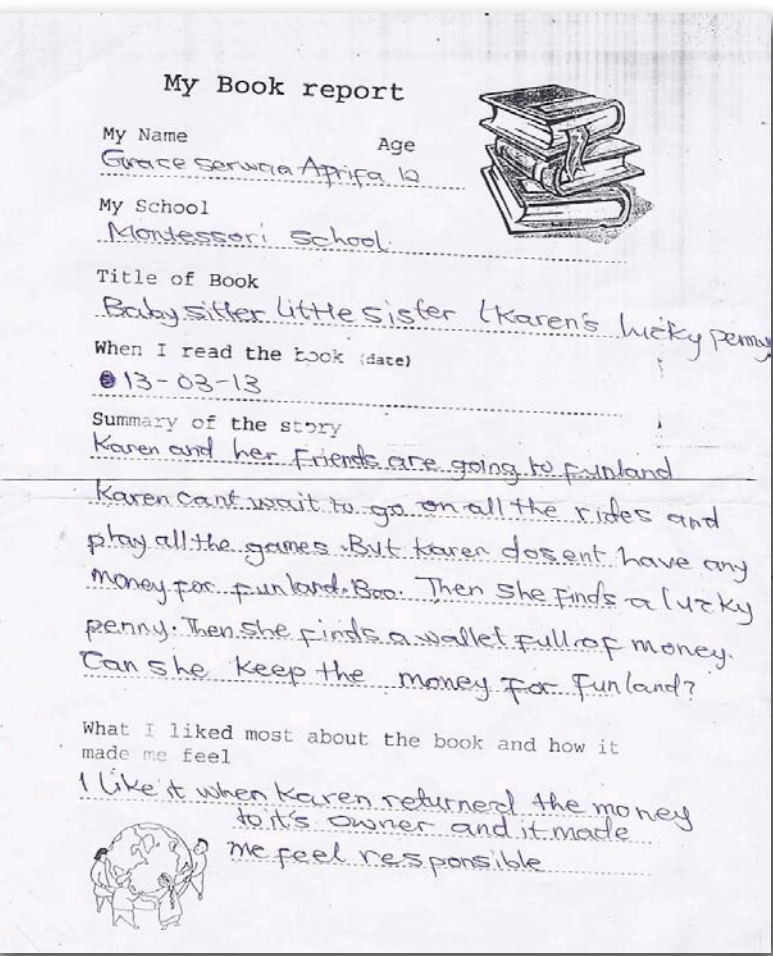 My Book report
My Name Age
Grace Serwaa Afrifa 10
My School
Montessori School.
Title of Book
Baby sitter little sister (Karen's lucky penny
When I read the book (date)
13-03-13
Summary of the story
Karen and her Friends are going to funland
Karen cant wait to go on all the rides and
play all the games. But Karen dosent have any
money for funland. Boo. Then she finds a lucky
penny. Then she finds a wallet full of money.
Can she keep the money for Funland?
What I liked most about the book and how it
made me feel
I like it when Karen returned the money
to it's owner and it made
me feel responsible